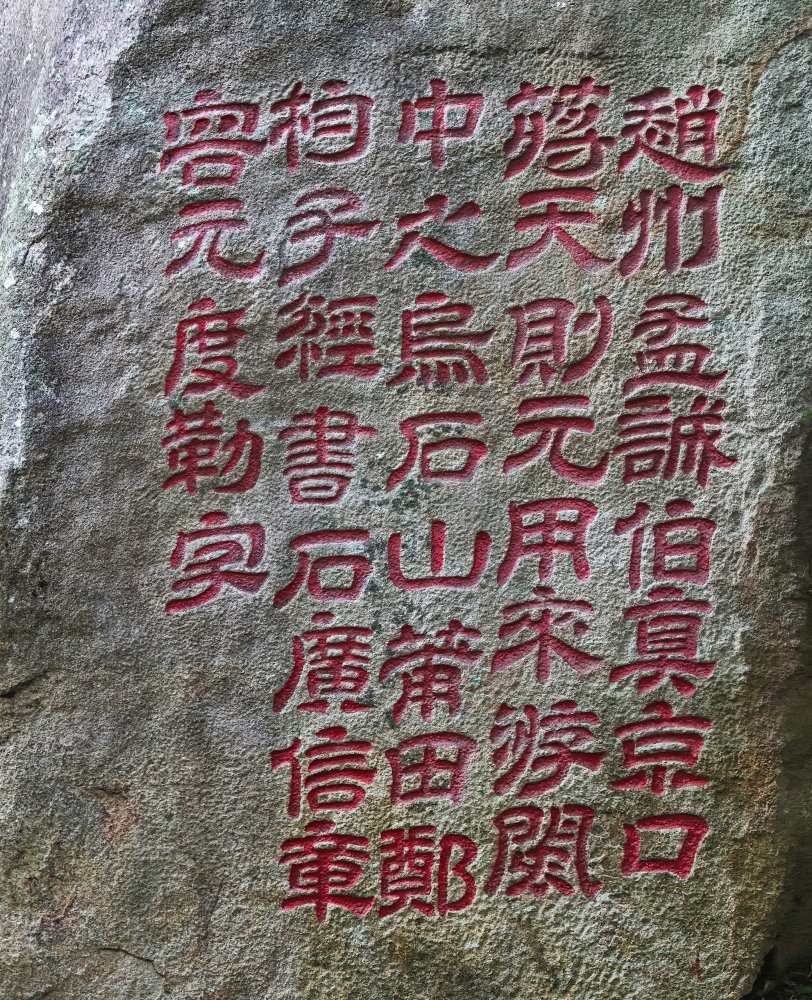 趙州孟誠伯眞京口
蔣天則元用來游閩
中之烏石山莆田鄭
杓子經書石廣信章
容元度勒字